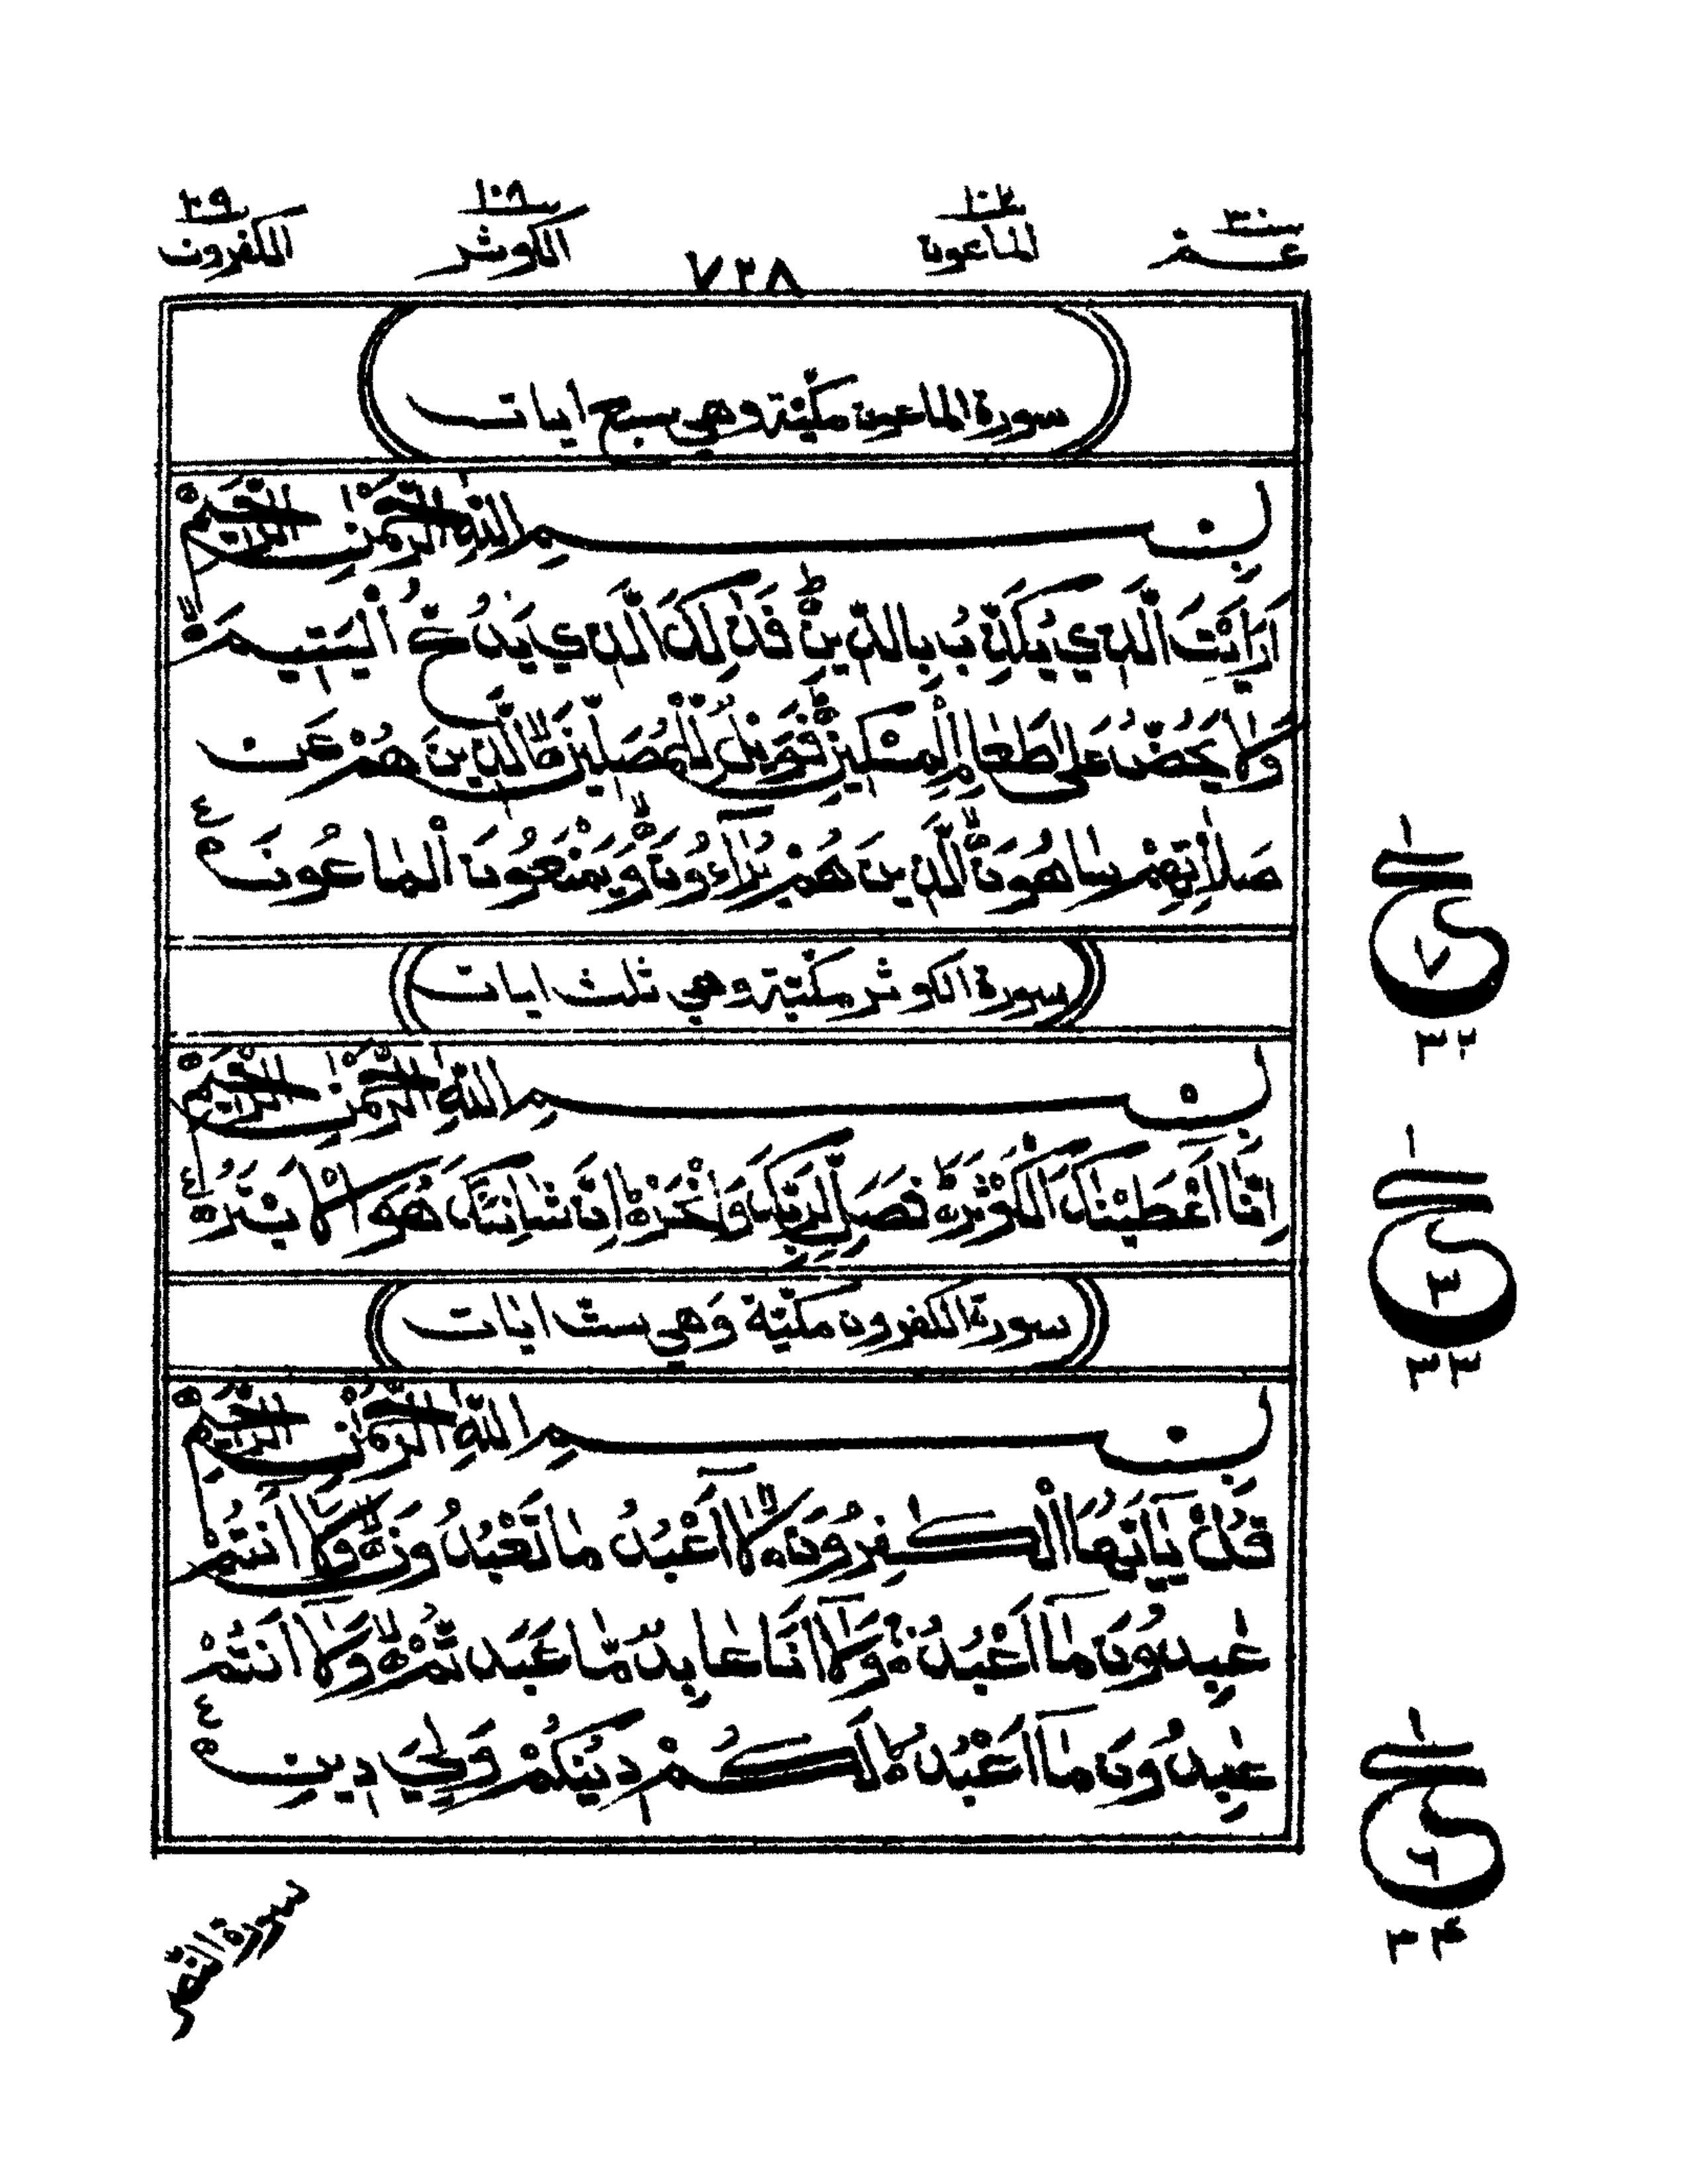 عم ٣٠ الماعون ١٠٧ الكوثر ١٠٨
٧٢٨
سورة الماعون مكية وهي سبع ايات
بِسْمِ اللّٰهِ الرَّحْمٰنِ الرَّحِيْمِ
اَرَاَيْتَ الَّذِيْ يُكَذِّبُ بِالدِّيْنِ ؕ فَذٰلِكَ الَّذِيْ يَدُعُّ الْيَتِيْمَ ۙ
وَلَا يَحُضُّ عَلٰى طَعَامِ الْمِسْكِيْنِ ؕ فَوَيْلٌ لِّلْمُصَلِّيْنَ ۙ الَّذِيْنَ هُمْ عَنْ
صَلَاتِهِمْ سَاهُوْنَ ۙ الَّذِيْنَ هُمْ يُرَآءُوْنَ ۙ وَيَمْنَعُوْنَ الْمَاعُوْنَ ع
سورة الكوثر مكية وهي ثلث ايات
بِسْمِ اللّٰهِ الرَّحْمٰنِ الرَّحِيْمِ
اِنَّآ اَعْطَيْنٰكَ الْكَوْثَرَ ؕ فَصَلِّ لِرَبِّكَ وَانْحَرْ ؕ اِنَّ شَانِئَكَ هُوَ الْاَبْتَرُ ع
سورة الكفرون مكية وهي ست ايات
بِسْمِ اللّٰهِ الرَّحْمٰنِ الرَّحِيْمِ
قُلْ يٰٓاَيُّهَا الْكٰفِرُوْنَ ۙ لَآ اَعْبُدُ مَا تَعْبُدُوْنَ ۙ وَلَآ اَنْتُمْ
عٰبِدُوْنَ مَآ اَعْبُدُ ۚ وَلَآ اَنَا عَابِدٌ مَّا عَبَدْتُّمْ ۙ وَلَآ اَنْتُمْ
عٰبِدُوْنَ مَآ اَعْبُدُ ؕ لَكُمْ دِيْنُكُمْ وَلِيَ دِيْنِ ع
١ ع ٧ ٣٢
١ ع ٣ ٣٣
١ ع ٦ ٣٤
سورة النصر